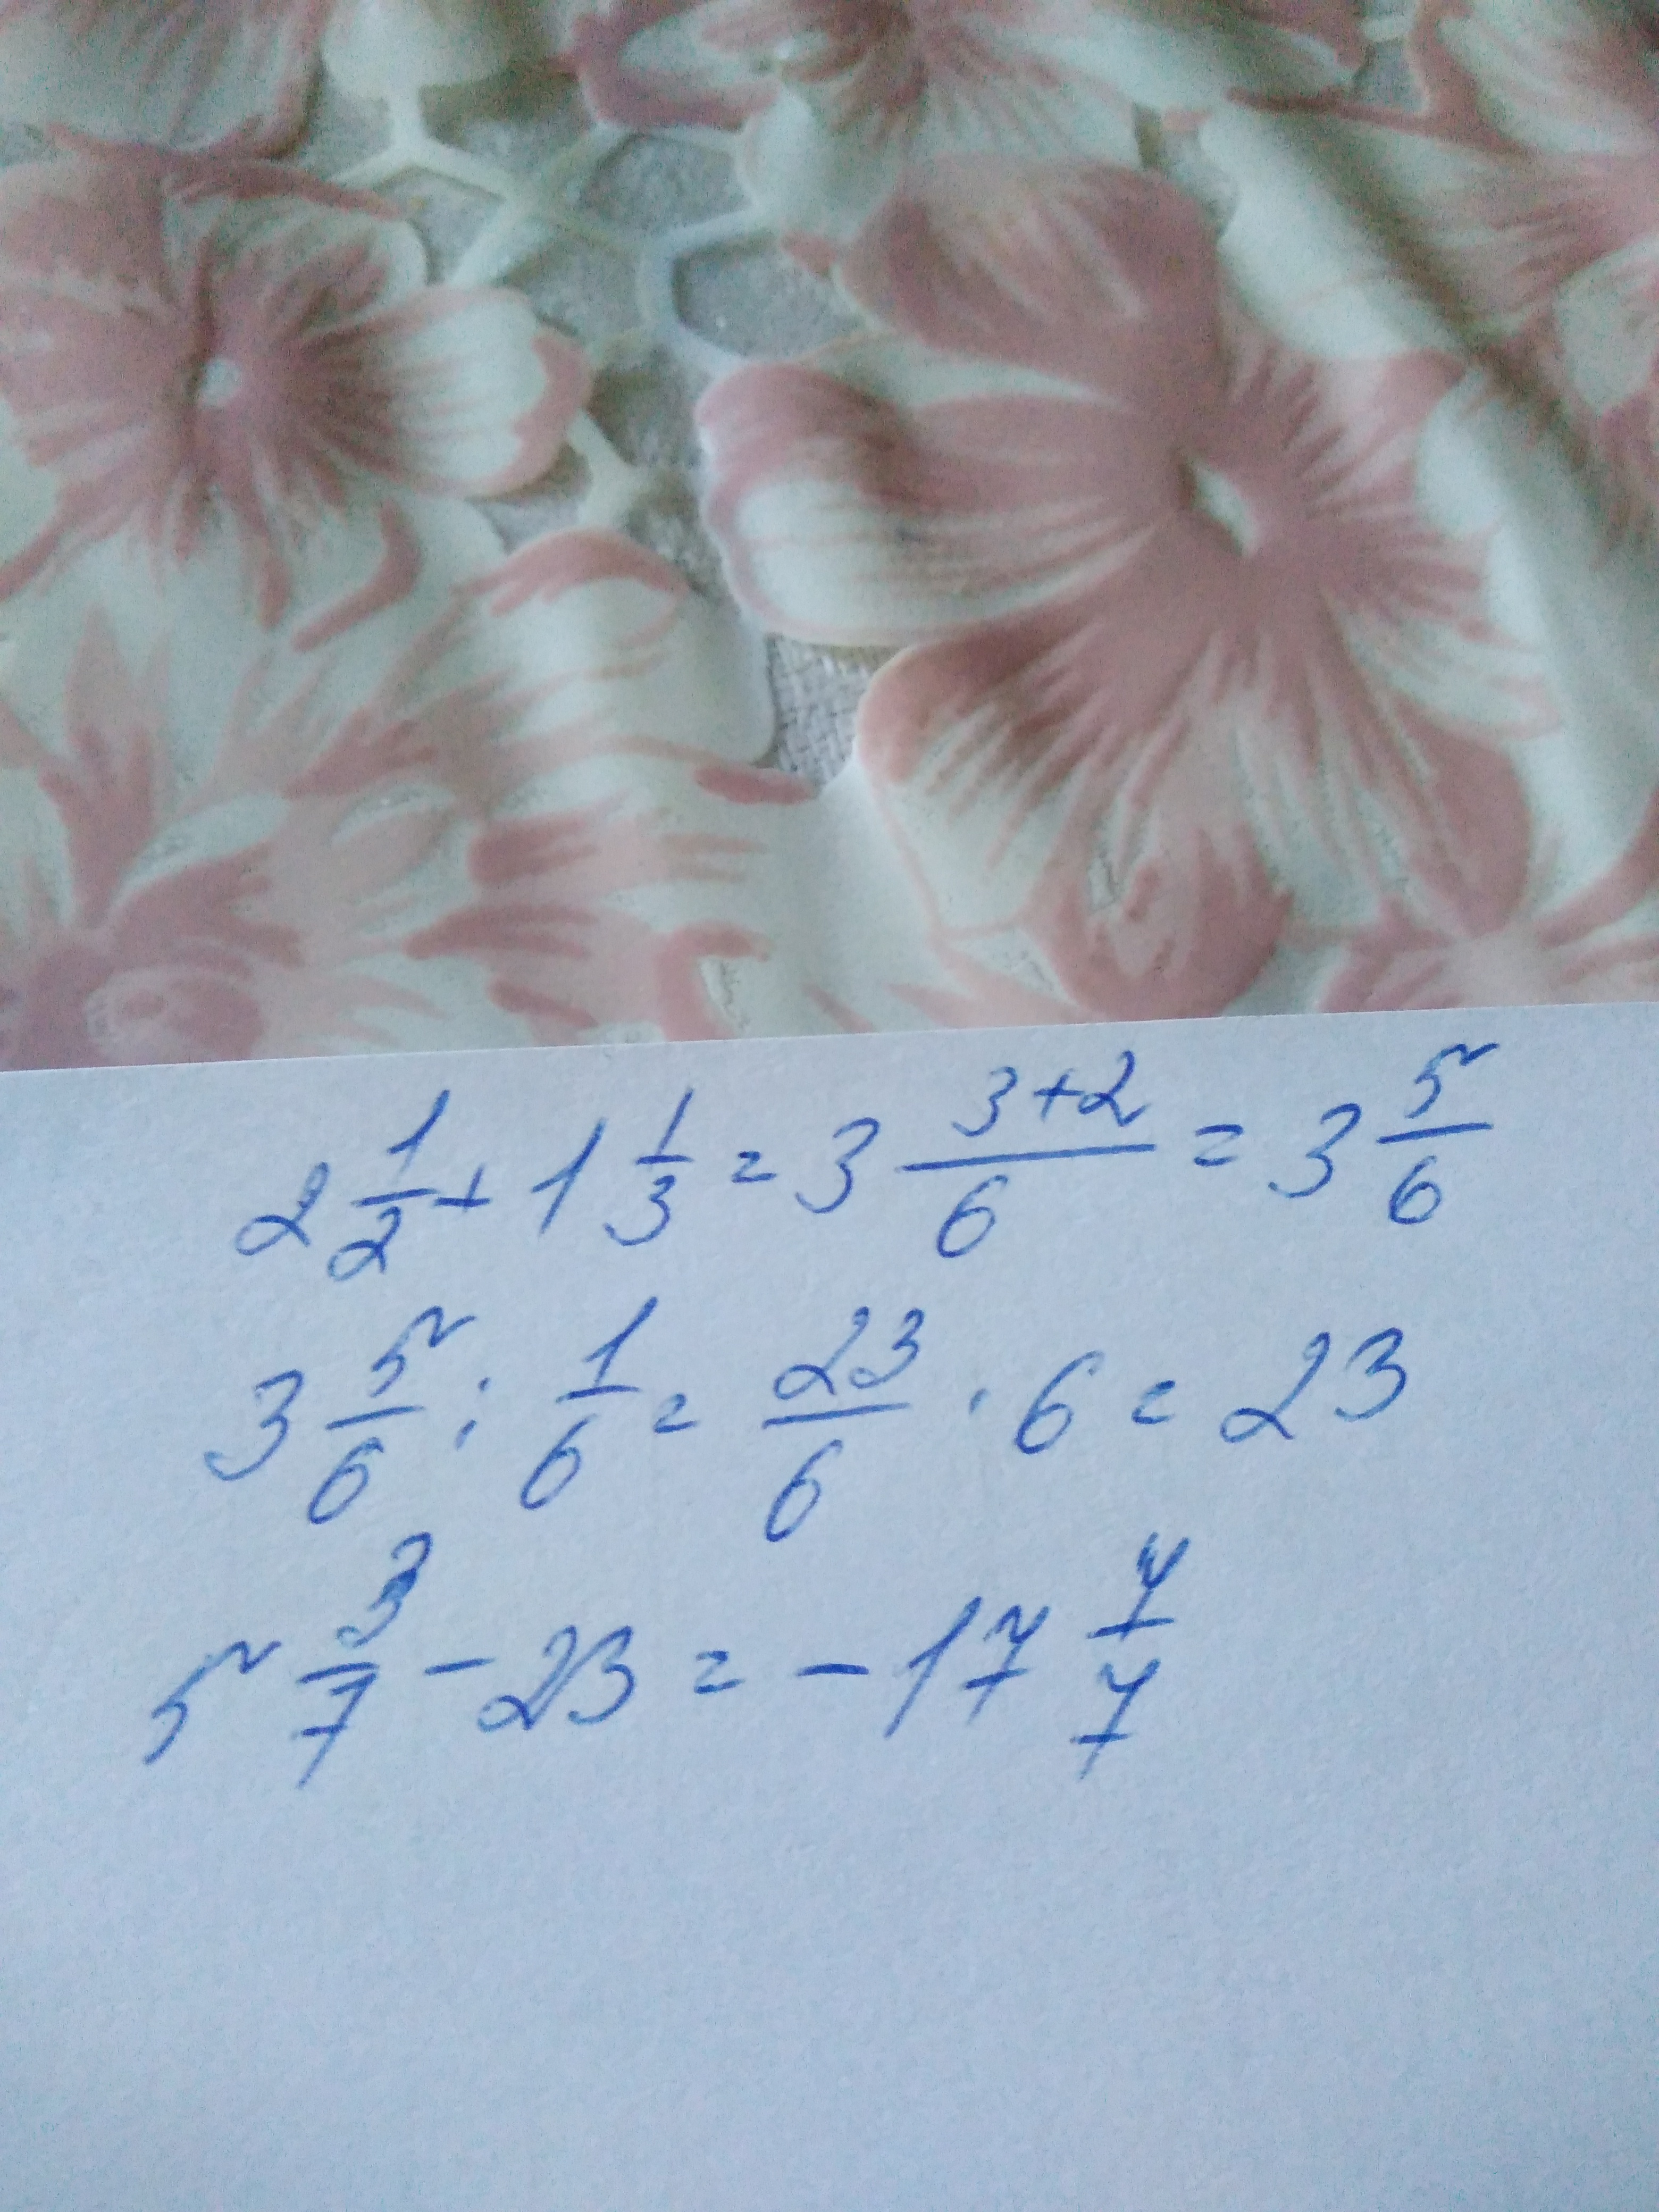 2 1/2 + 1 1/3 = 3 (3+2)/6 = 3 5/6
3 5/6 : 1/6 = 23/6 · 6 = 23
5 3/7 - 23 = - 17 4/7